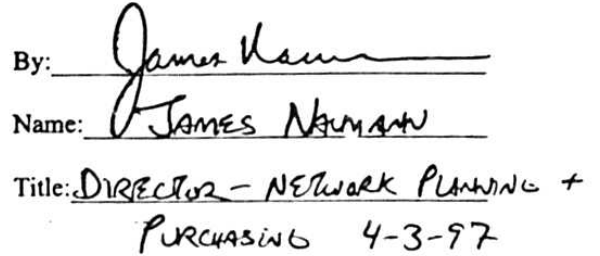 By: James Naumann
Name: JAMES NAUMANN
Title: DIRECTOR - NETWORK PLANNING +
PURCHASING 4-3-97